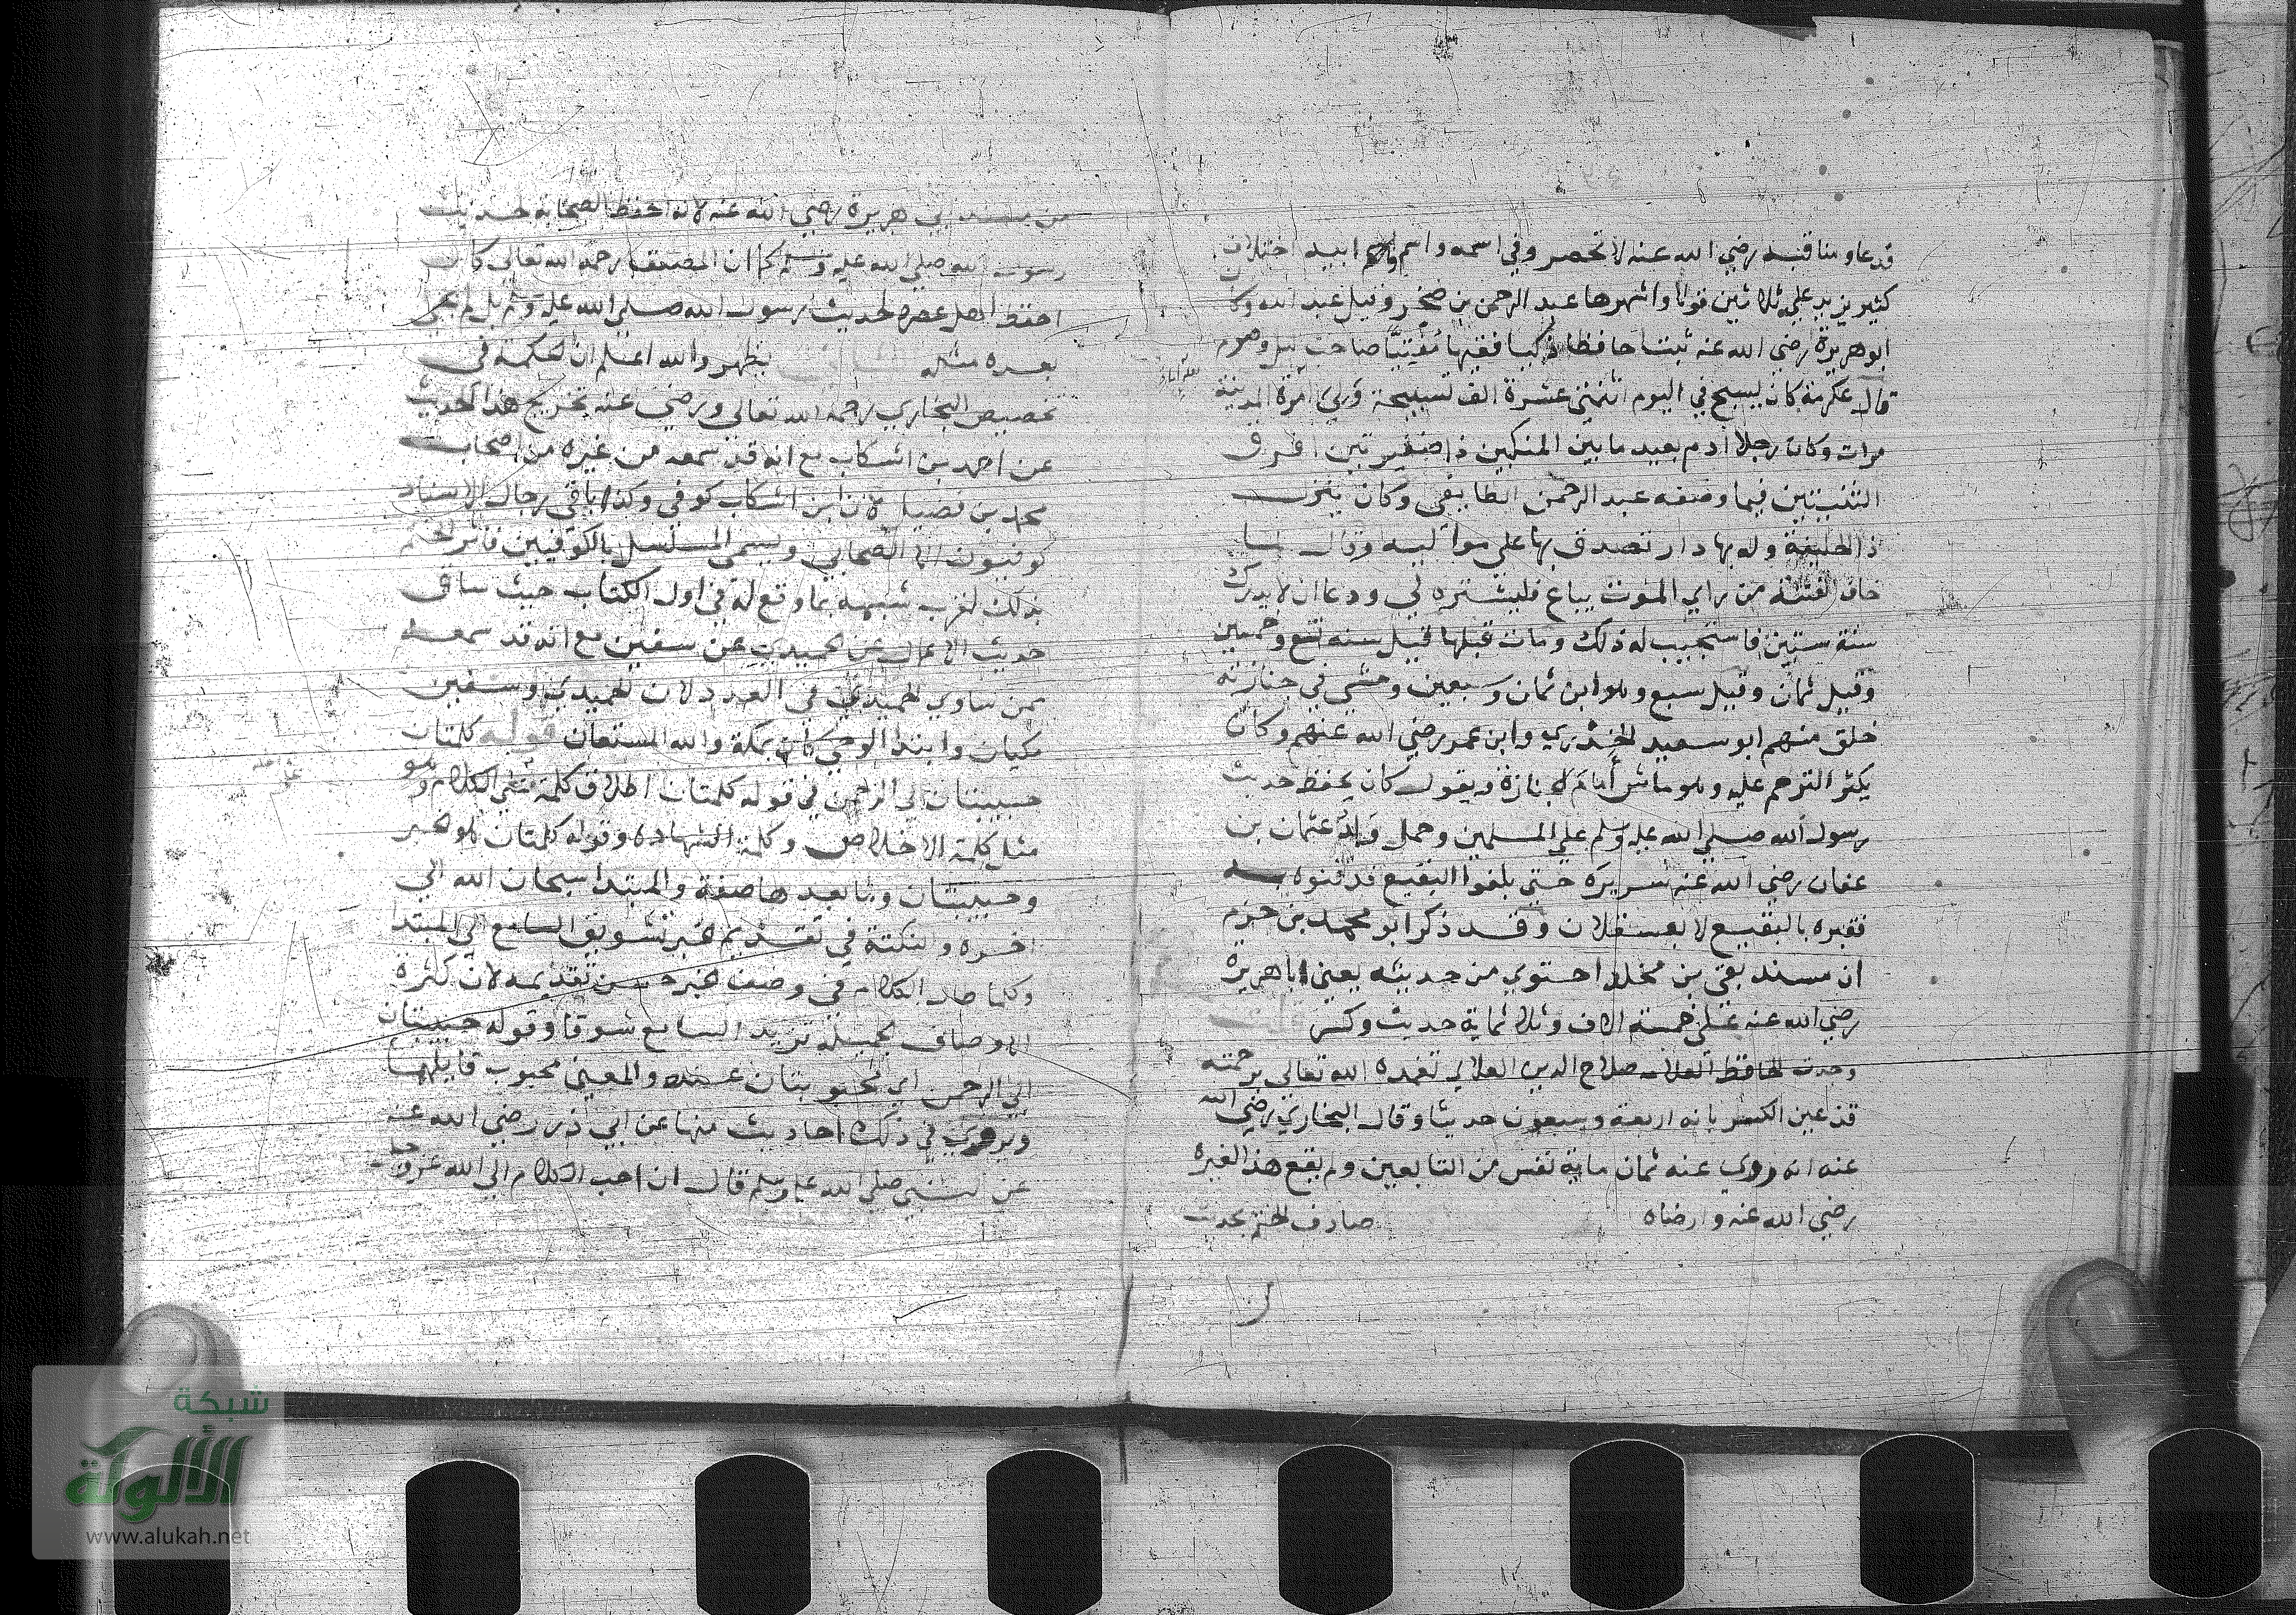 قدعا ومناقبه رضي الله عنه لا تحصر وفي اسمه واسم ابيه اختلاف
كثير يزيد علي ثلاثين قولا واشهرها عبد الرحمن بن صخر وقيل عبد الله وكان
ابوهريرة رضي الله عنه ثبتا حافظا ذكيا فقيها مفتيا صاحب ليل وصوم
قال عكرمة كان يسبح في اليوم اثنتي عشرة الف تسبيحة وولي امرة المدينة
مرات وكان رجلا آدم بعيد ما بين المنكبين ذا ضفيرتين افرق
الثنيتين فيما وصفه عبد الرحمن الطايفي وكان ينزل
ذا الحليفة وله بها دار تصدق بها علي مواليه وقال لما
خاف الفتنة من راي الموت يباع فليشتره لي ودعا ان لا يدرك
سنة ستين فاستجيب له ذلك ومات قبلها قيل سنه تسع وخمسين
وقيل ثمان وقيل سبع وهو ابن ثمان وسبعين ومشي في جنازته
خلق منهم ابو سعيد الخدري وابن عمر رضي الله عنهم وكان
يكثر الترحم عليه وهو ماش أمام الجنازة ويقول كان يحفظ حديث
رسول الله صلي الله عليه وسلم علي المسلمين وحمل ولد عثمان بن
عفان رضي الله عنه سريره حتي بلغوا البقيع فدفنوه به
فقبره بالبقيع لا بعسقلان وقد ذكر ابو محمد بن حزم
ان مسند بقي بن مخلد احتوي من حديثه يعني ابا هريرة
رضي الله عنه علي خمسة الاف وثلاثماية حديث وكسر قلت
وجدت الحافظ العلامه صلاح الدين العلائي تغمده الله تعالي برحمته
قد عين الكسر بانه اربعة وسبعون حديثا وقال البخاري رضي الله
عنه انه روي عنه ثمان ماية نفس من التابعين ولم يقع هذا لغيره
رضي الله عنه وارضاه صادف الختم بحديث
من مسند ابي هريرة رضي الله عنه لانه احفظ الصحابة لحديث
رسول الله صلي الله عليه وسلم كما ان المصنف رحمه الله تعالي كان
احفظ اهل عصره لحديث رسول الله صلي الله عليه وسلم بل لم يجئ
بعده مثله يظهر والله اعلم ان الحكمة في
تخصيص البخاري رحمه الله تعالي ورضي عنه تخريج هذا الحديث
عن احمد بن اشكاب مع انه قد سمعه من غيره من اصحاب
محمد بن فضيل لان ابن اشكاب كوفي وكذا باقي رجال الاسناد
كوفيون الا الصحابي ويسمي المسلسل بالكوفيين فاثر الختم
بذلك لقرب شبهه بما وقع له في اول الكتاب حيث ساق
حديث الاعمال عن الحميدي عن سفين مع انه قد سمعه
ممن ساوي الحميدي في العدد لان الحميدي وسفين
مكيان وابتدا الوحي كان بمكة والله المستعان قوله كلمتان
حبيبتان الي الرحمن في قوله كلمتان اطلاق كلمة علي الكلام وهو
مثل كلمة الاخلاص وكلمة الشهادة وقوله كلمتان هو خبر
وحبيبتان وما بعدها صفة والمبتدا سبحان الله الي
اخره والنكتة في تقديم الخبر تشويق السامع الي المبتدا
وكلما طال الكلام في وصف الخبر حسن تقديمه لان كثرة
الاوصاف الجميلة تزيد السامع شوقا وقوله حبيبتان
الي الرحمن اي محبوبتان عنده والمعني محبوب قايلهما
ويروي في ذلك احاديث منها عن ابي ذر رضي الله عنه
عن النبي صلي الله عليه وسلم قال ان احب الكلام الي الله عز وجل
شبكة
الألوكة
www.alukah.net